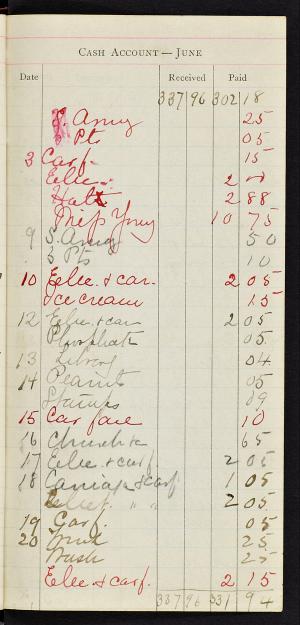 CASH ACCOUNT — JUNE
Date Received Paid
337 96 302 18
S. Army 25
Pts 05
3 Carf. 15
Elec. 2
Hat 2 88
Miss Young 10 75
9 S. Army 50
Pts 10
10 Elec. & car. 2 05
Ice cream 15
12 Elec. & car 2 05
Phosphate 05
13 Library 04
14 Peanuts 05
Stamps 09
15 Car fare 10
16 Church &c 65
17 Elec. & carf. 2 05
18 Carriage & carf 1 05
Elec. " " 2 05
19 Carf. 05
20 25
Wash 25
Elec. & carf. 2 15
337 96 331 94